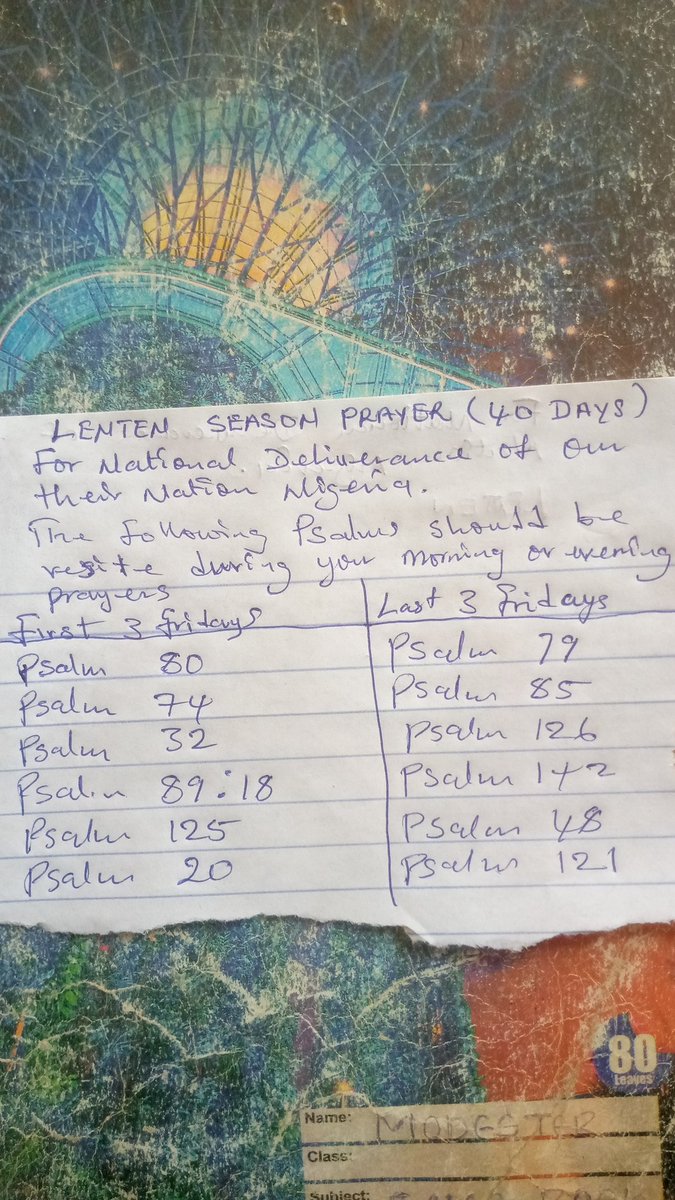 LENTEN SEASON PRAYER (40 DAYS)
For National Deliverance of our
their Nation Nigeria.
The following Psalms should be
resite during you morning or evening
prayers
First 3 fridays
Psalm 80
Psalm 74
Psalm 32
Psalm 89:18
Psalm 125
Psalm 20
Last 3 fridays
Psalm 79
Psalm 85
Psalm 126
Psalm 142
Psalm 48
Psalm 121
80
Leaves
Name:
Class:
Subject: